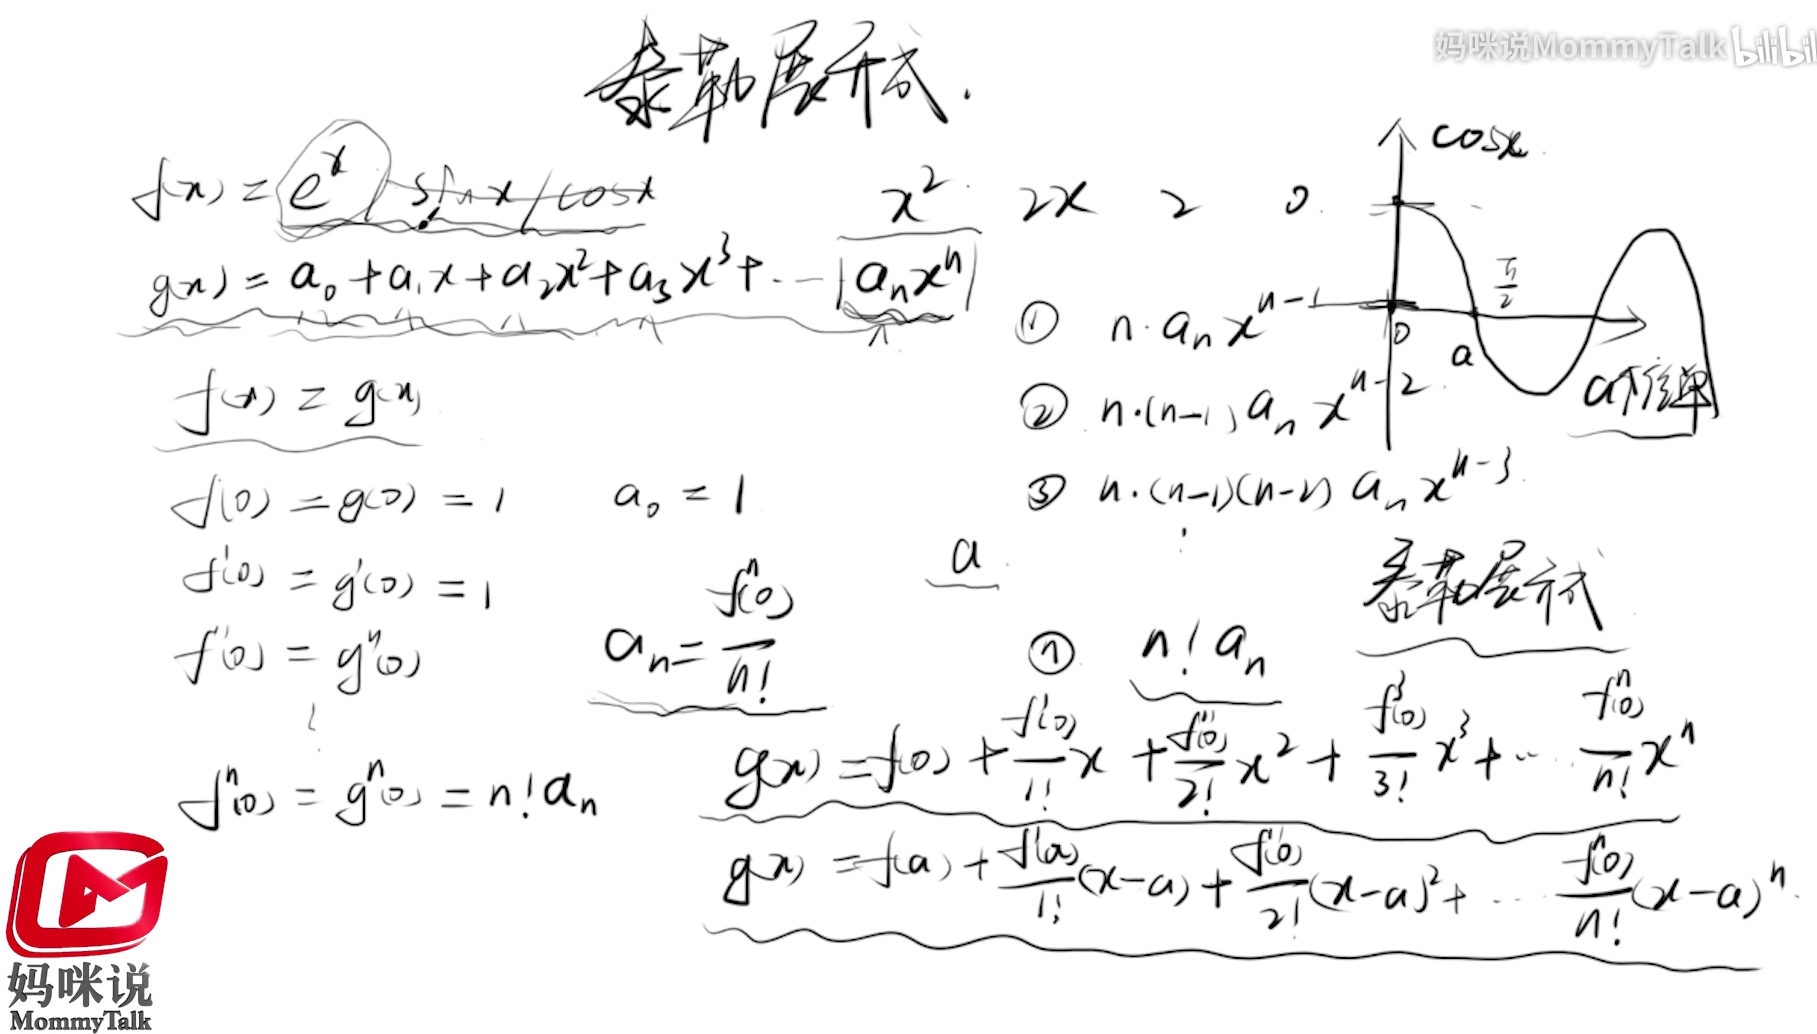 妈咪说MommyTalk bilibili
泰勒展开式.
f(x) = e^x sinx/cosx
g(x) = a₀ + a₁x + a₂x² + a₃x³ + ... aₙxⁿ
f(x) = g(x)
f(0) = g(0) = 1
a₀ = 1
f'(0) = g'(0) = 1
f''(0) = g''(0)
fⁿ(0) = gⁿ(0) = n! aₙ
aₙ = fⁿ(0)/n!
x² 2x 2 0
① n·aₙxⁿ⁻¹
② n·(n-1)aₙxⁿ⁻²
③ n·(n-1)(n-2)aₙxⁿ⁻³
a
ⓝ n! aₙ
cosx
π/2
0
a
a
单
泰勒展开式
g(x) = f(0) + f'(0)/1! x + f''(0)/2! x² + f³(0)/3! x³ + ... fⁿ(0)/n! xⁿ
g(x) = f(a) + f'(a)/1! (x-a) + f''(0)/2! (x-a)² + ... fⁿ(0)/n! (x-a)ⁿ
妈咪说
MommyTalk